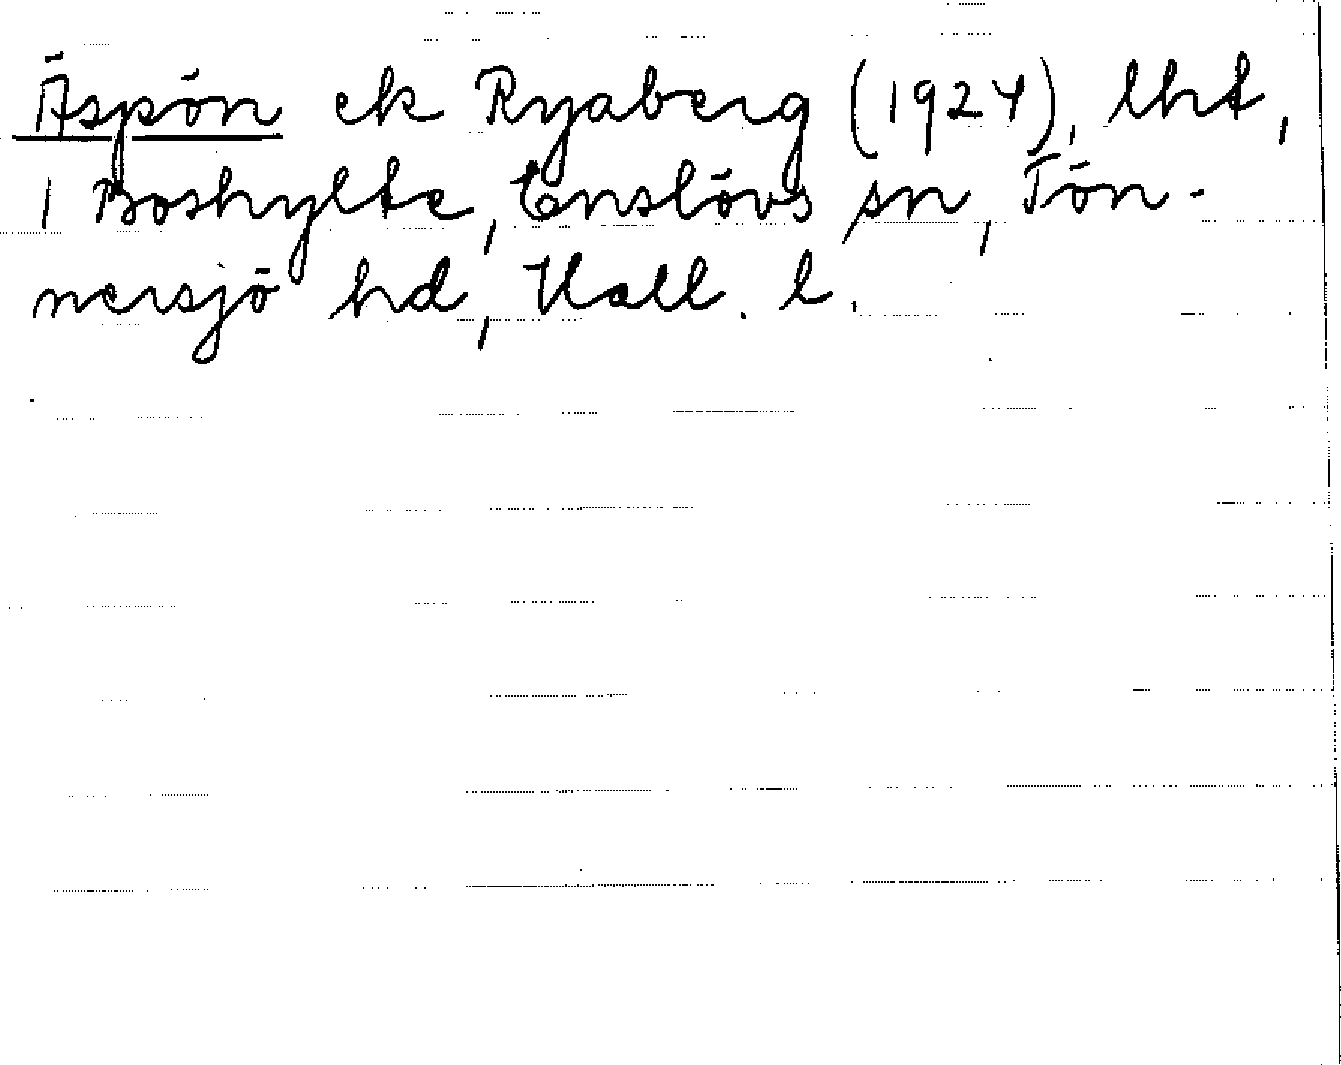 Äspön ek Ryaberg (1924), lht,
1 Boshylte, Enslövs sn, Tön-
nersjö hd, Hall. l.